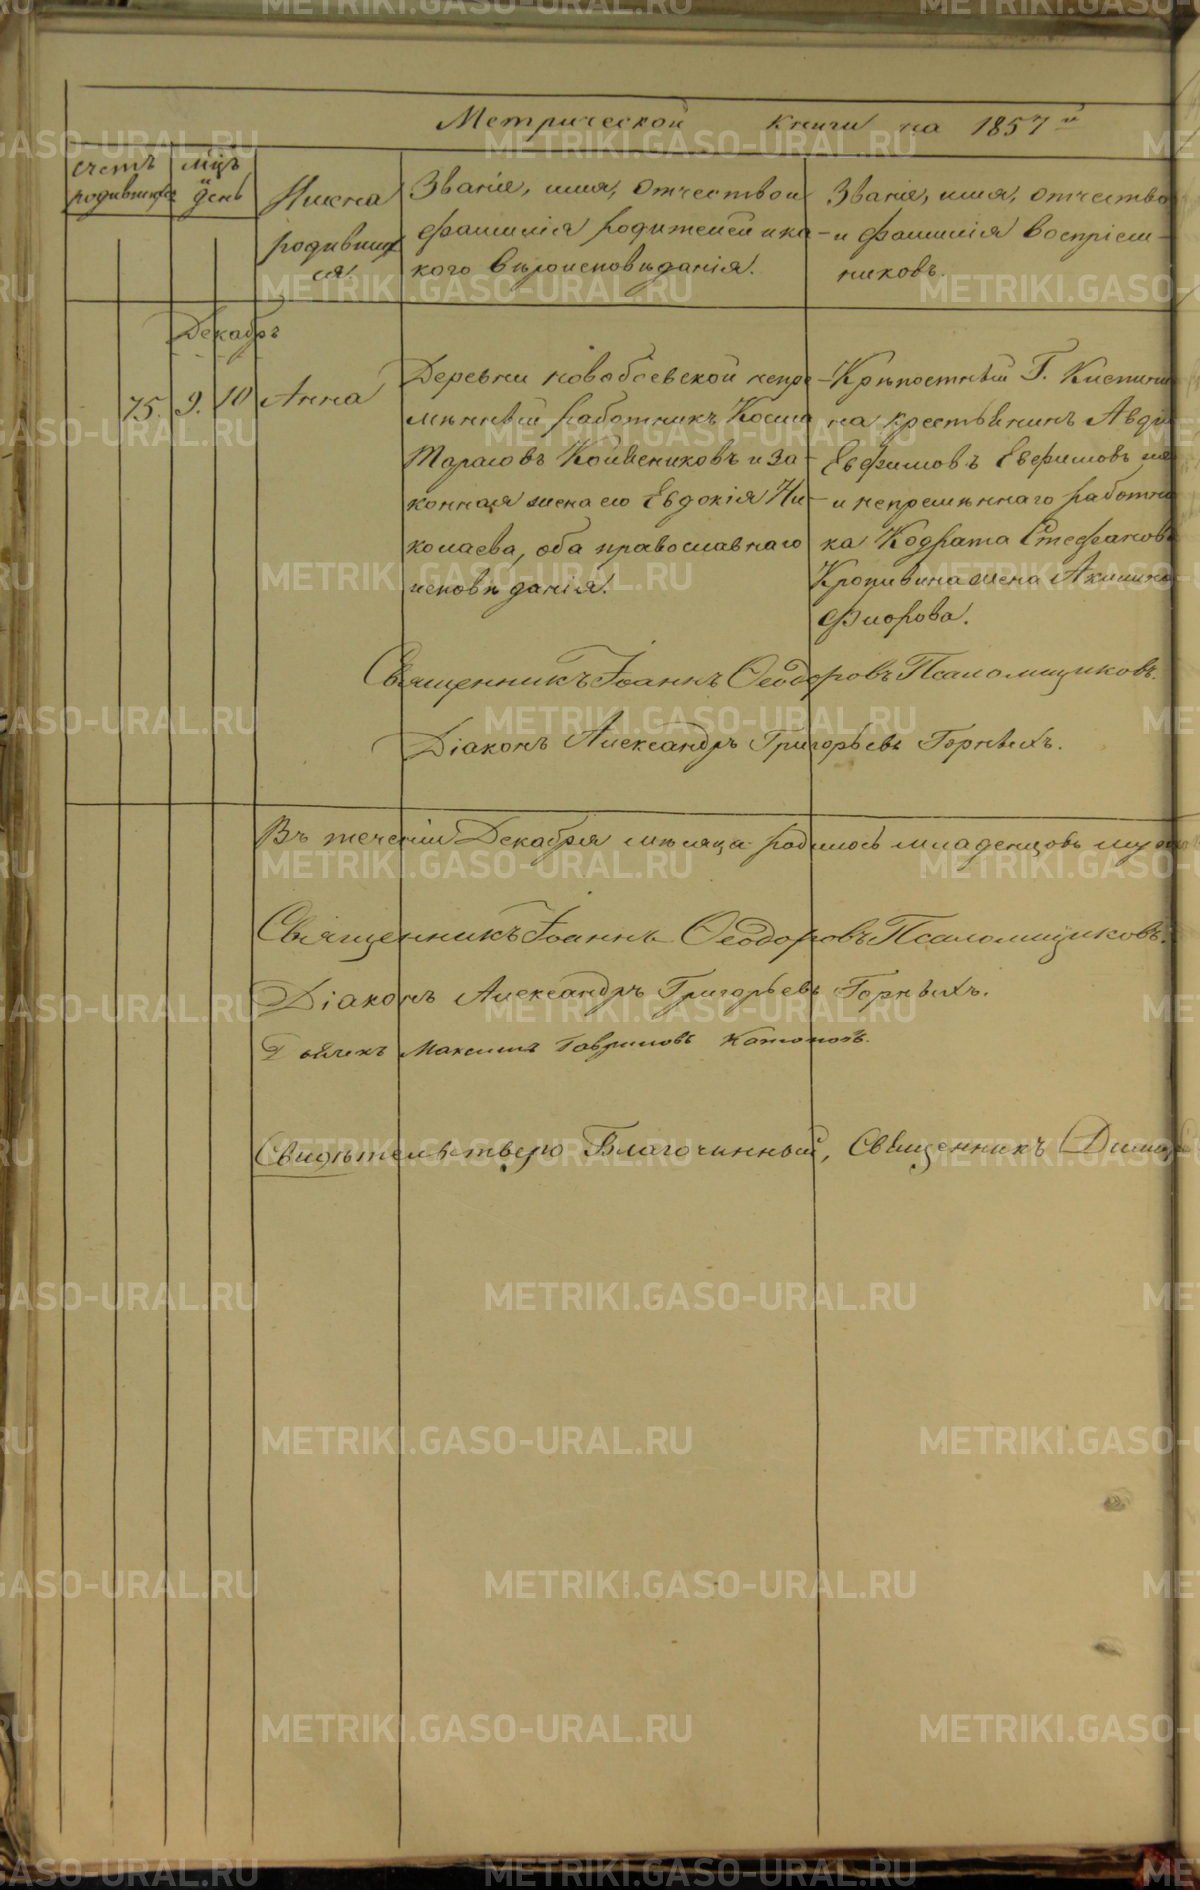 Метрической книги на 1857й
счетъ родившихся
мцъ и день
Имена родившихся.
Званіе, имя, отчество и
фамилія родителей и ка-
кого вѣроисповѣданія.
Званіе, имя, отчество
и фамилія воспріем-
никовъ.
Декабрь
75. 9. 10 Анна
Деревни Новобоевской непре-
мѣнный работникъ Косма
Тарасовъ и за-
конная жена его Евдокія Ни-
колаева, оба православнаго
исповѣданія.
Крѣпостный Г.
на крестьянинъ
Евфимовъ Евфимовъ
и непремѣннаго работни
ка Кодрата Стефанова
Кропивина жена Акилина
Флорова.
Священникъ Іоаннъ Ѳеодоровъ Псаломщиковъ.
Діаконъ Александръ Григорьевъ Горныхъ.
Въ теченіи Декабря мѣсяца родилось младенцовъ
Священникъ Іоаннъ Ѳеодоровъ Псаломщиковъ.
Діаконъ Александръ Григорьевъ Горныхъ.
Максимъ Гавриловъ
Свидѣтельствую Благочинный, Священникъ
METRIKI.GASO-URAL.RU